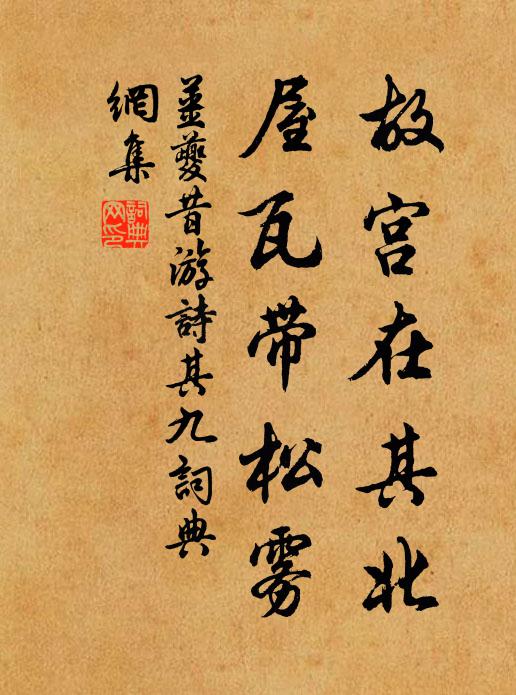 故宫在其北
屋瓦带松雾
姜夔昔游詩其九詞典
網集
詞典網印